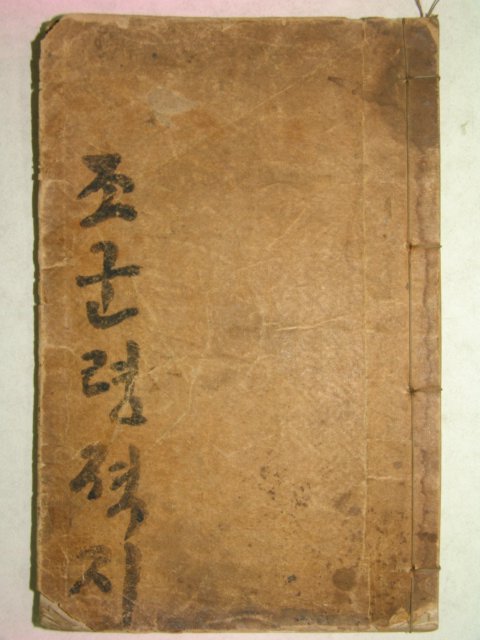 조군령젹지